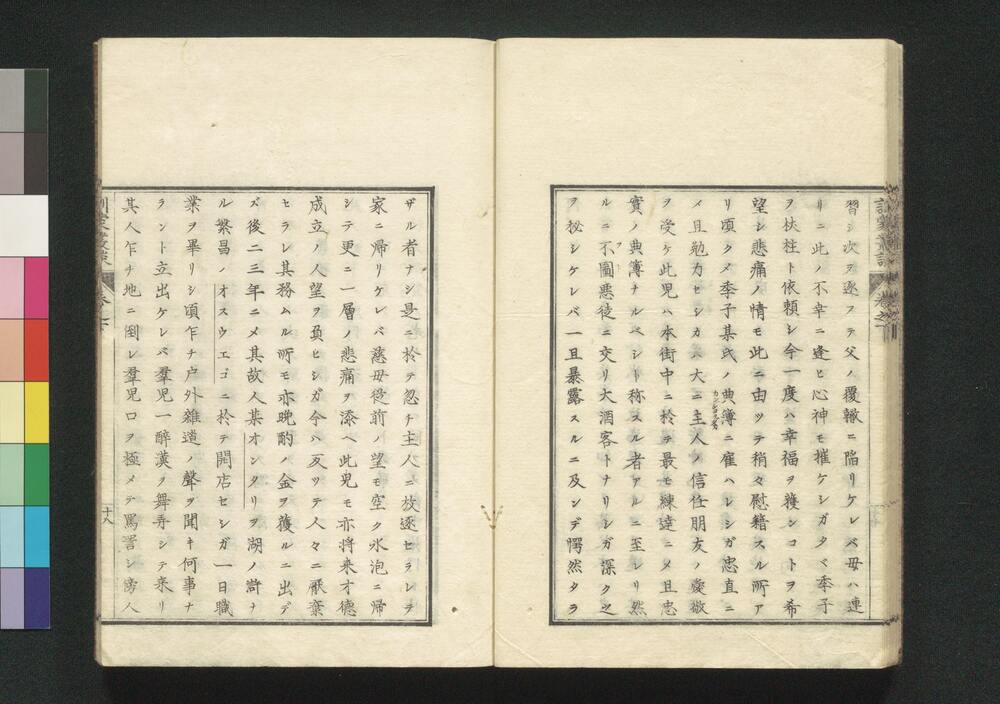 習シ次ヲ逐フテ父ノ覆轍ニ陥リケレバ母ハ連
リニ此ノ不幸ニ逢ヒ心神モ摧ケシガタヾ季子
ヲ杖柱ト依頼シ今一度ハ幸福ヲ獲ンコトヲ希
望シ悲痛ノ情モ此ニ由ツテ稍々慰籍スル所ア
リ頃クメ季子某氏ノ典簿ニ雇ハレシガ忠直ニ
メ且勉力セシカバ大ニ主人ノ信任朋友ノ愛敬
ヲ受ケ此児ハ本街中ニ於テ最モ練達ニメ且忠
實ノ典簿ナルベシト称スル者アルニ至レリ然
ルニ不圖悪徒ニ交リ大酒客トナリシガ深ク之
ヲ秘シケレバ一旦暴露スルニ及ンデ愕然タラ
ザル者ナシ是ニ於テ忽チ主人ニ放逐セラレテ
家ニ帰リケレバ慈母従前ノ望モ空ク水泡ニ帰
シテ更ニ一層ノ悲痛ヲ添ヘ此児モ亦将来才徳
成立ノ人望ヲ負ヒシガ今ハ反ツテ人々ニ厭棄
セラレ其務ムル所モ亦晩酌ノ金ヲ獲ルニ出デ
ズ後二三年ニメ其故人某オンタリヲ湖ノ滸ナ
ル繁昌ノオスウエゴニ於テ開店セシガ一日職
業ヲ畢リシ頃乍チ户外雑遝ノ聲ヲ聞キ何事ナ
ラント立出ケレバ羣児一醉漢ヲ舞弄シテ来リ
其人乍チ地ニ倒レ羣児口ヲ極メテ罵詈シ傍人
十八